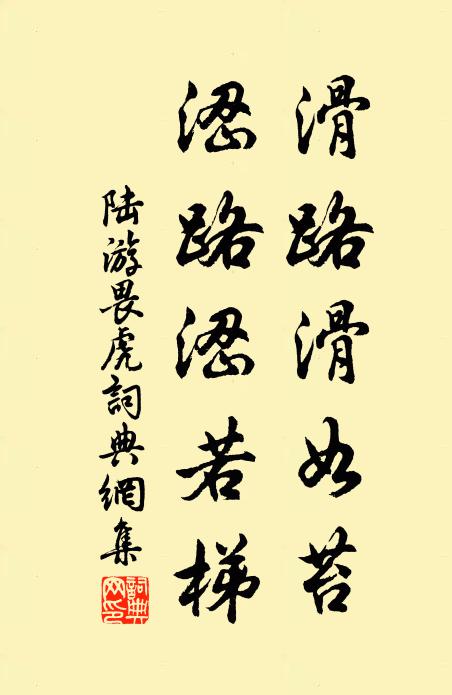 滑路滑如苔
涩路涩若梯
陆游畏虎詞典網集